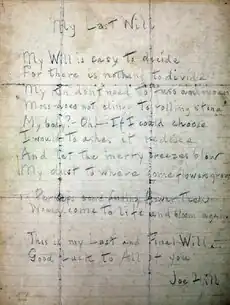 My Last Will
My Will is easy to decide
For there is nothing to divide
My kin don't need to fuss and moan
Moss does not cling to rolling stone
My body? - Oh! - If I could choose
I would to ashes it reduce
And let the merry breezes blow
My dust to where some flowers grow
Perhaps some fading flower then
Would come to life and bloom again
This is my Last and Final Will.
Good Luck to All of you
Joe Hill